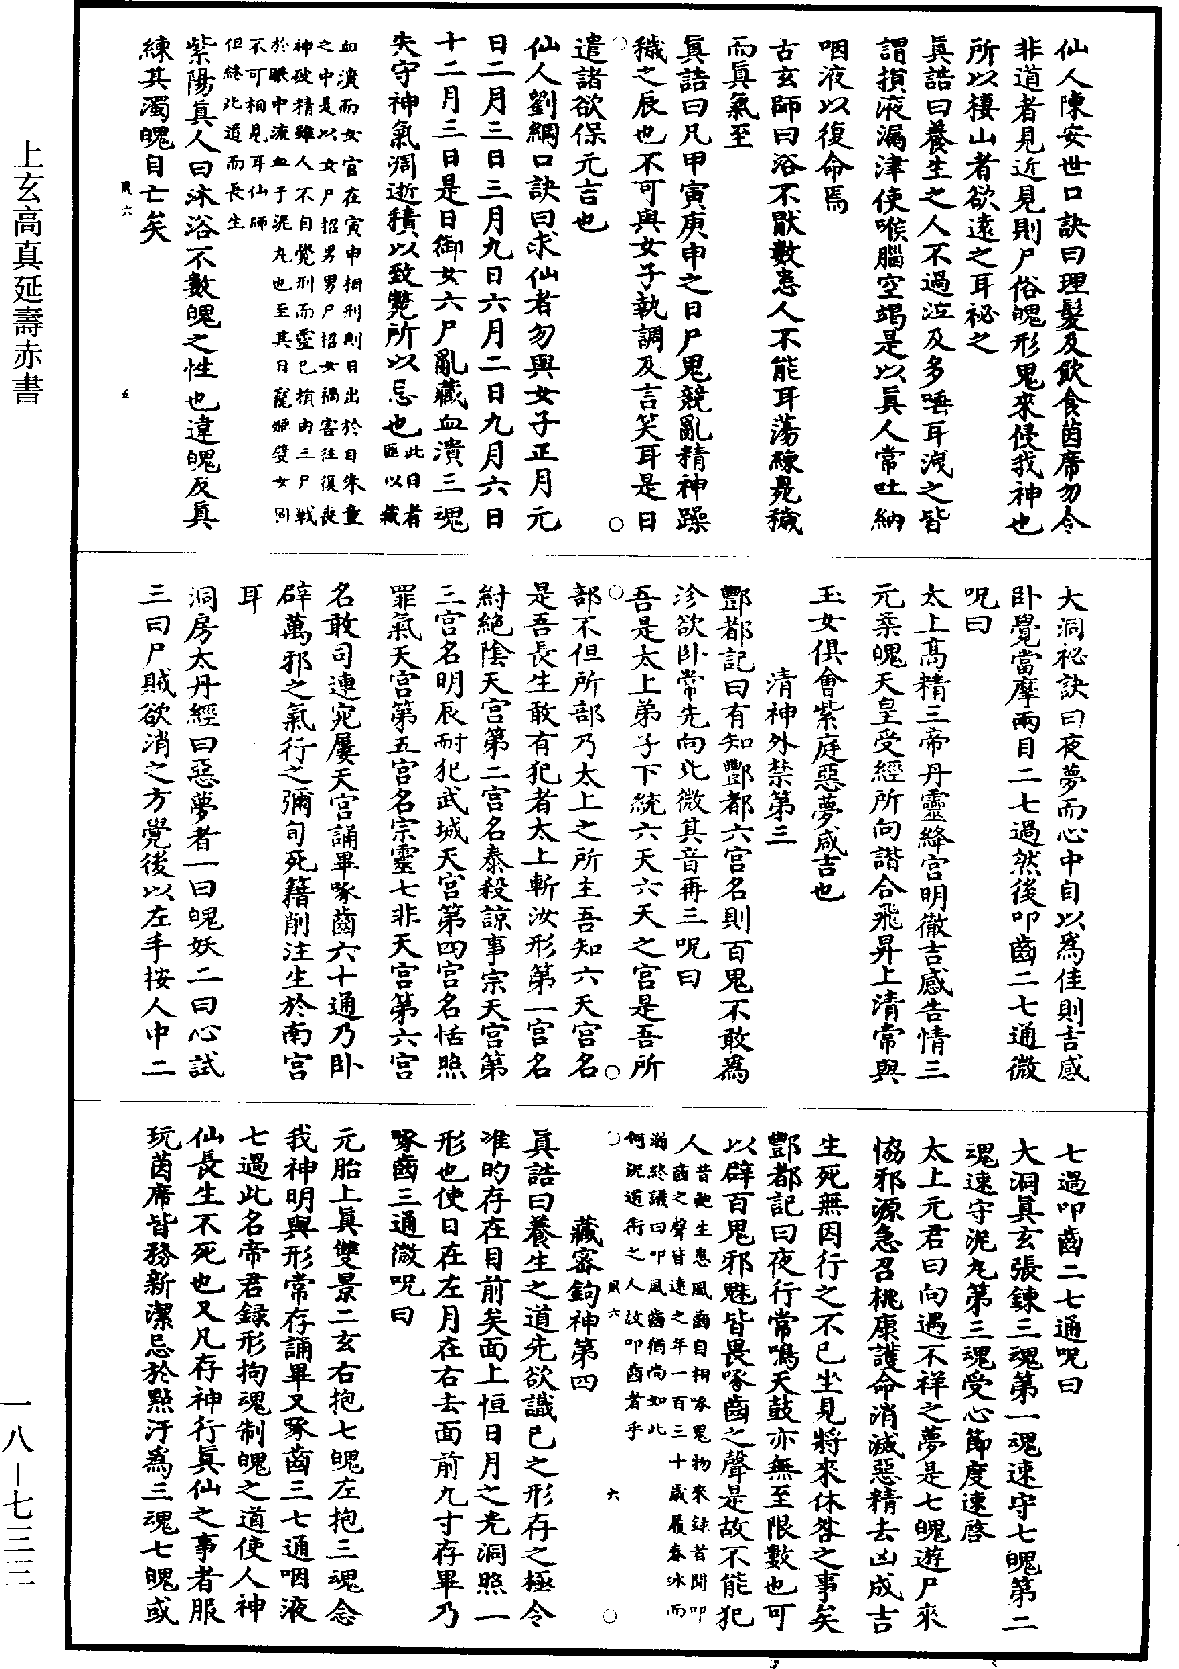 上玄高真延壽赤書
一八—七三三
仙人陳安世口訣曰理髮及飲食茵席勿令
非道者見近見則尸俗魄形鬼來侵我神也
所以棲山者欲遠之耳祕之
眞誥曰養生之人不過泣及多唾耳洩之皆
謂損液漏津使喉腦空竭是以眞人常吐納
咽液以復命焉
古玄師曰浴不猒數患人不能耳蕩練晃穢
而眞氣至
眞誥曰凡甲寅庚申之日尸鬼競亂精神躁
穢之辰也不可與女子執調及言笑耳是日
遣諸欲保元吉也
仙人劉綱口訣曰求仙者勿與女子正月元
日二月三日三月九日六月二日九月六日
十二月三日是日御女六尸亂藏血潰三魂
失守神氣凋逝積以致斃所以忌也
此日者
匪以藏
血潰而女官在寅申相刑則日出於目朱童
之中是以女尸招男男尸招女禍害往復喪
神破精雖人不自覺形而靈已損由三尸戰
於眼中流血于泥丸也至其日寵姬嬖女別
不可相見耳仙師
但終此道而長生
紫陽眞人曰沐浴不數魄之性也違魄反眞
練其濁魄自亡矣
大洞祕訣曰夜夢而心中自以爲佳則吉感
卧覺當摩兩目二七過然後叩齒二七通微
呪曰
太上高精三帝丹靈絳宮明徹吉感告情三
元柔魄天皇受經所向諧合飛昇上清常與
玉女俱會紫庭惡夢咸吉也
清神外禁第三
酆都記曰有知酆都六宮名則百鬼不敢爲
沴欲卧常先向北微其音再三呪曰
吾是太上弟子下統六天六天之宮是吾所
部不但所部乃太上之所主吾知六天宮名
是吾長生敢有犯者太上斬汝形第一宮名
紂絕陰天宮第二宮名泰殺諒事宗天宮第
三宮名明辰耐犯武城天宮第四宮名恬照
罪氣天宮第五宮名宗靈七非天宮第六宮
名敢司連宛屢天宮誦畢啄齒六十通乃卧
辟萬邪之氣行之彌旬死籍削注生於南宮
耳
洞房太丹經曰惡夢者一曰魄妖二曰心試
三曰尸賊欲消之方覺後以左手按人中二
七過叩齒二七通呪曰
大洞眞玄張鍊三魂第一魂速守七魄第二
魂速守泥丸第三魂受心節度速啓
太上元君曰向遇不祥之夢是七魄遊尸來
協邪源急召桃康護命消滅惡精去凶成吉
生死無因行之不已坐見將來休咎之事矣
酆都記曰夜行常鳴天鼓亦無至限數也可
以辟百鬼邪魅皆畏啄齒之聲是故不能犯
人
昔鮑生患風齒自相啄鬼物來錄者聞叩
齒之聲皆遠之年一百三十歲履春冰而
溺終議曰叩風齒猶尚如此
何況道術之人故叩齒者乎
藏密鈞神第四
眞誥曰養生之道先欲識己之形存之極令
准的存在目前矣面上恒日月之光洞照一
形也使日在左月在右去面前九寸存畢乃
啄齒三通微呪曰
元胎上眞雙景二玄右抱七魄左抱三魂念
我神明與形常存誦畢又啄齒三七通咽液
七過此名帝君録形拘魂制魄之道使人神
仙長生不死也又凡存神行眞仙之事者服
玩茵席皆務新潔忌於點汙爲三魂七魄或